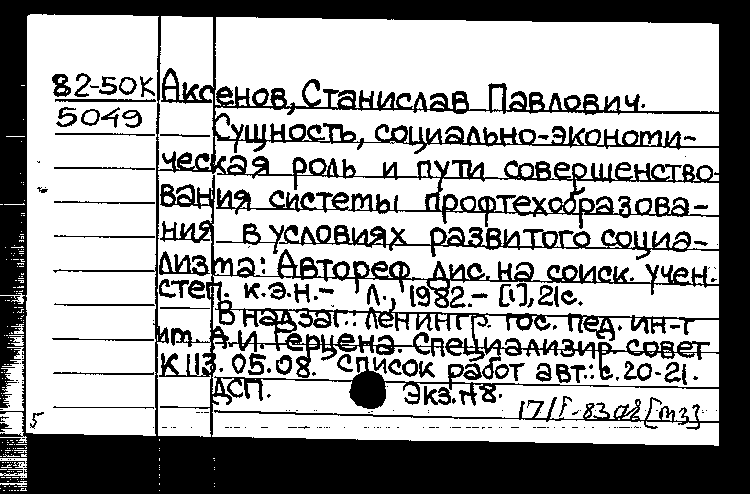 82-50К Аксенов, Станислав Павлович.
5049 Сущность, социально-экономи-
ческая роль и пути совершенство-
вания системы профтехобразова-
ния в условиях развитого социа-
лизма: Автореф. дис. на соиск. учен.
степ. к.э.н.- Л., 1982.- [1], 21с.
В надзаг.: Ленингр. гос. пед. ин-т
им. А.И. Герцена. Специализир. совет
К 113.05.08. Список работ авт.: с. 20-21.
ДСП. Экз.№8.
5